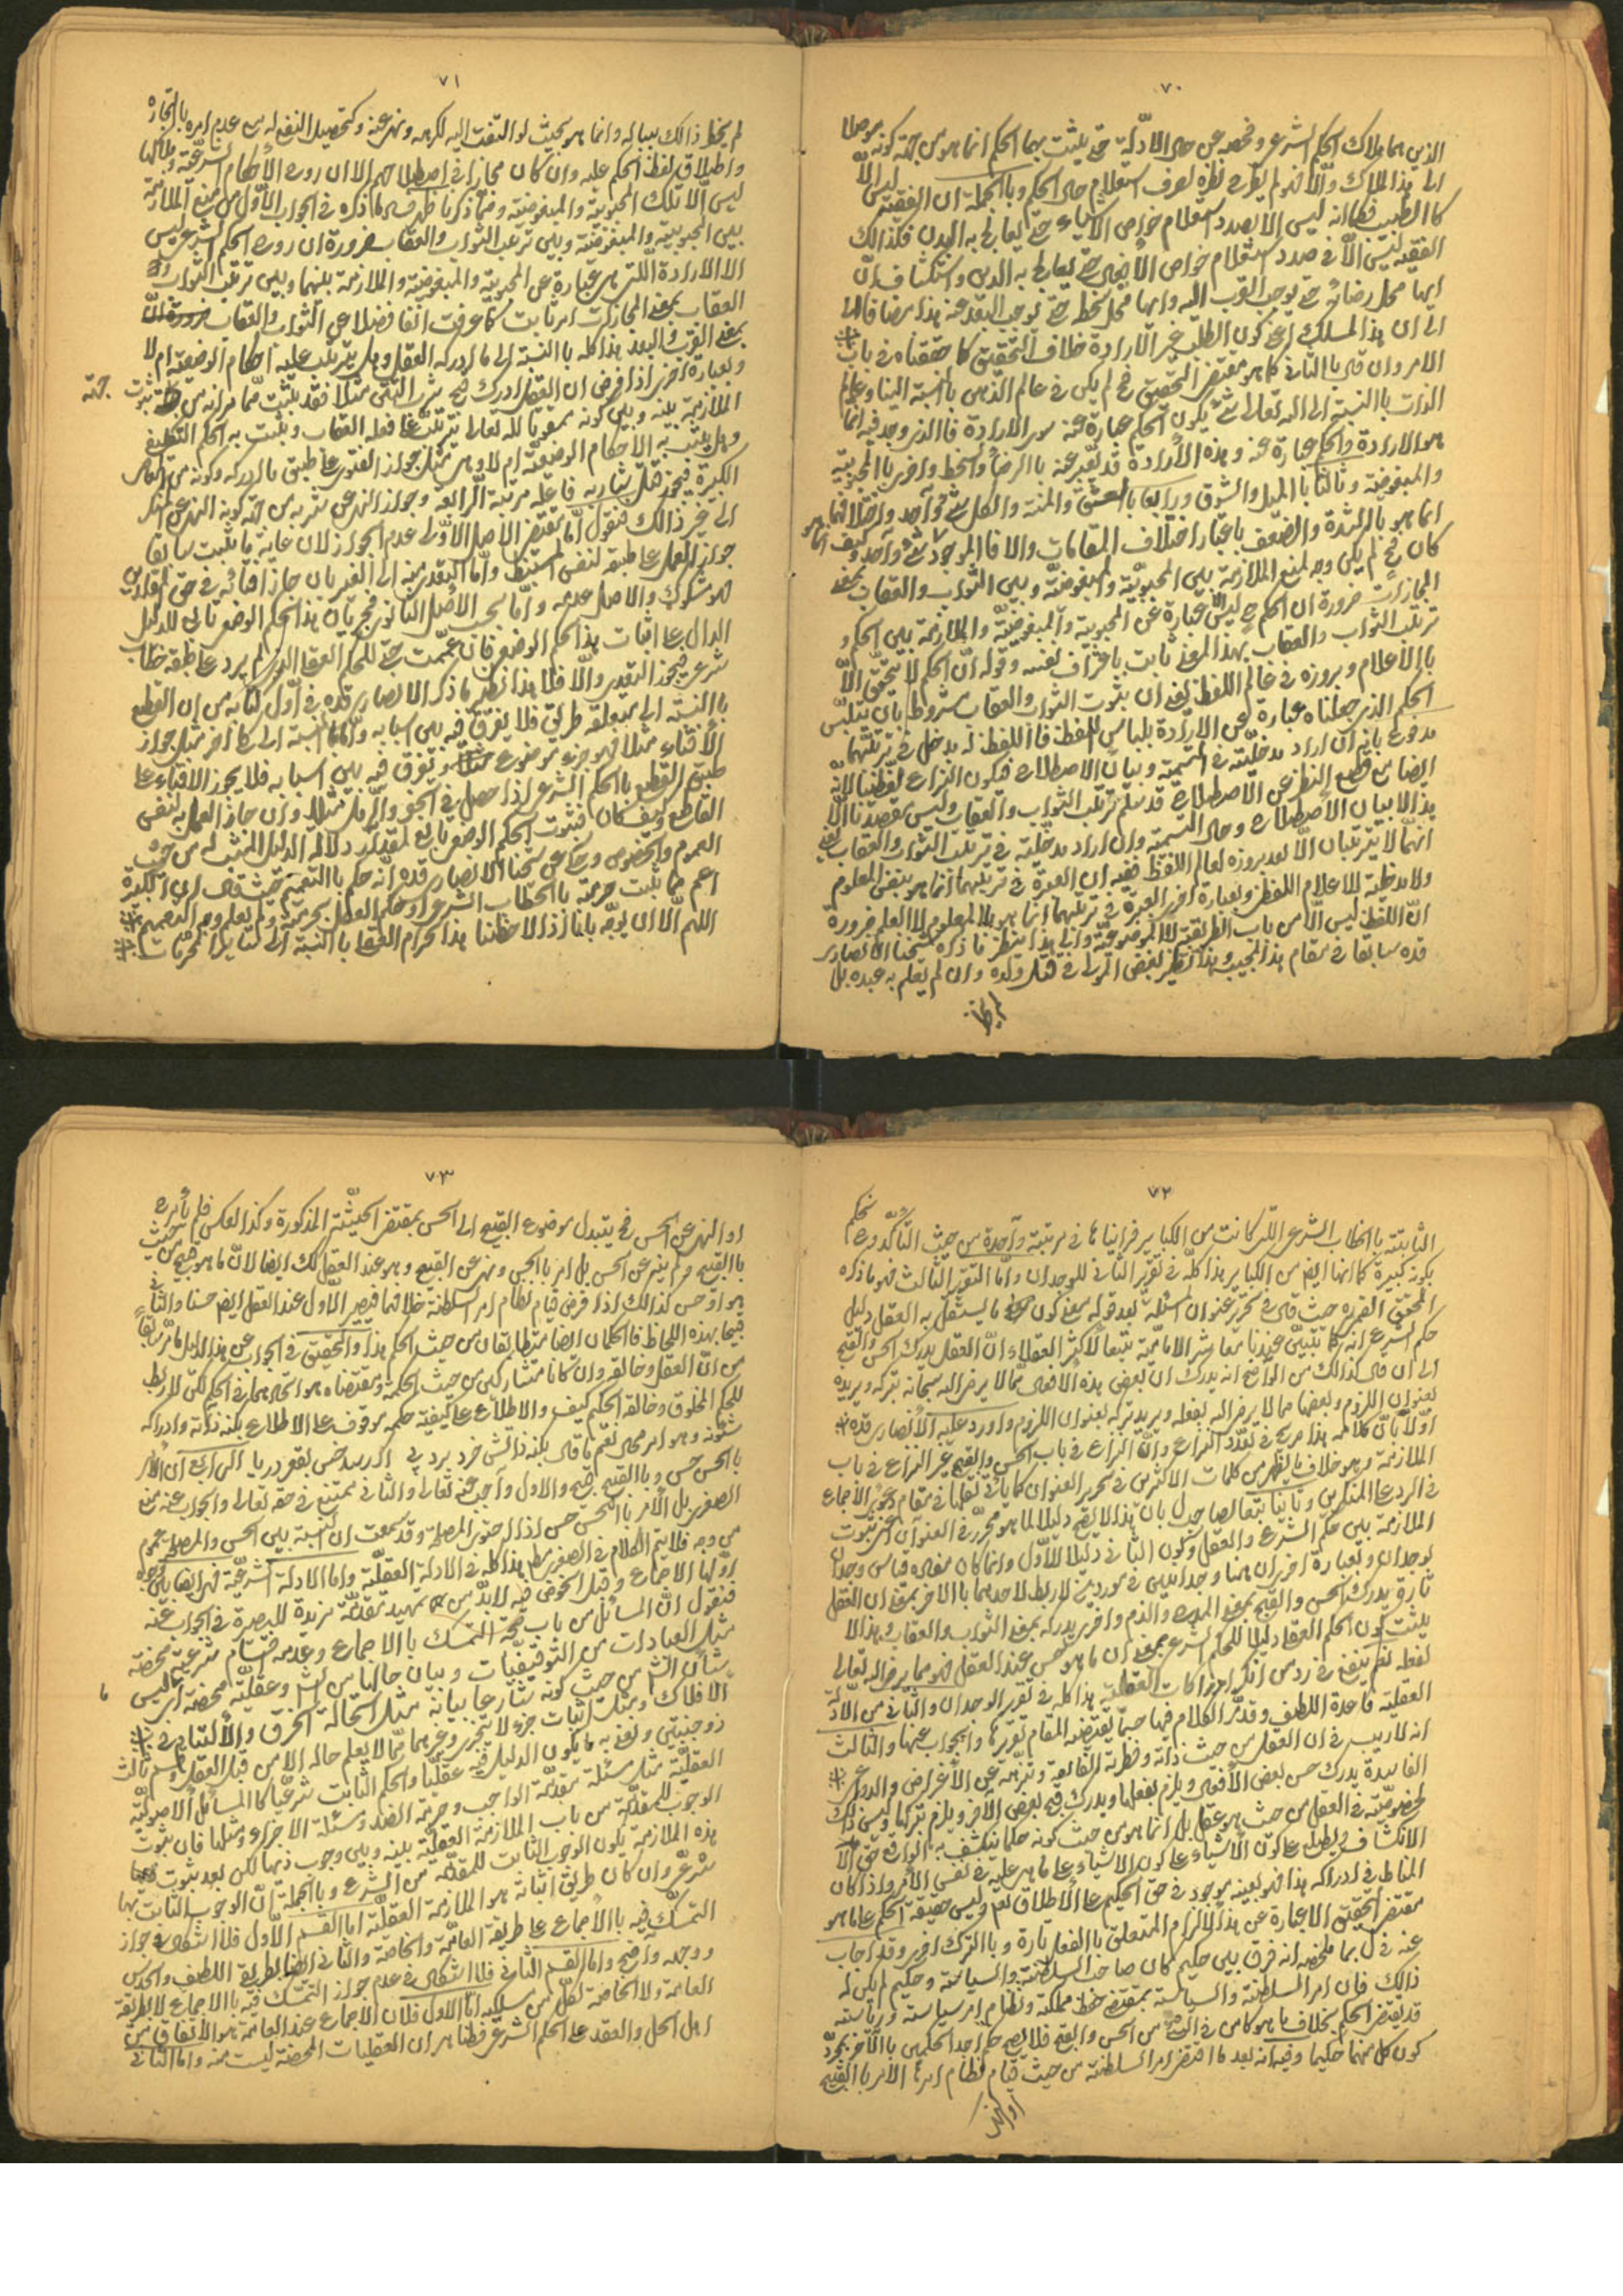 ٧٠
الذين هما ملاك الحكم الشرعى وفحصه عن حال الادلّة حتى يثبت بهما الحكم انما هو من جهة كونه موصلا
الى هذا الملاك والّا فهو لم يكن نظره لصرف استعلام حال الحكم وبالجملة ان الفقيه ليس الّا
كالطبيب فكما انه ليس الا بصدد استعلام خواص الاشياء حتى يعالج به البدن فكذلك
الفقيه ليس الّا فى صدد استعلام خواص الأفعال حتى يعالج به الدين واستكشاف انّ
ايها محل رضائه حتى يوجب القرب اليه وايها محل سخط حتى يوجب البعد عنه هذا مضافا الى
الى ان هذا المسلك اعنى كون الطلب غير الارادة خلاف التحقيق كما حققناه فى باب
الامر وان قال بالثانى كما هو مقتضى التحقيق فح لم يكن فى عالم الذهن بالنسبة الينا وعالم
الذات بالنسبة الى الله تعالى شئ يكون الحكم عبارة عنه سوى الارادة فالذى وجد فيه انما
هو الارادة والحكم عبارة عنه وهذه الأرادة قد يعبّر عنه بالرضا والسخط واخرى بالمحبوبية
والمبغوضية وثالثا بالميل والشوق ورابعا بالعشق والمنة والكل شئ واحد واختلافها
انما هو بالشدة والضعف باعتبار اختلاف المقامات والا فالموجود شئ واحد وكيف
كان فح لم يكن وجه لمنع الملازمة بين المحبوبيّة والمبغوضيّة وبين الثواب والعقاب بمعنى
المجازات ضرورة ان الحكم ح ليس الا عبارة عن المحبوبية والمبغوضيّة والملازمة بين الحكم و
ترتب الثواب والعقاب بهذا المعنى ثابت باعتراف نفسه وقوله انّ الحكم لا يتحقّق الّا
بالاعلام وبروزه فى عالم اللفظ يعنى ان ثبوت الثواب والعقاب مشروط بان يتلبّس
الحكم الذى جعلناه عبارة عن الارادة بلباس اللفظ فاللفظ له مدخل فى ترتبهما
مدفوع بانه ان اراد مدخليّته فى التسمية وبيان الاصطلاح فيكون النزاع لفظيا لانّه
ايضا مع قطع النظر عن الاصطلاح قد سلم ترتب الثواب والعقاب وليس مقصدنا الّا
هذا لا بيان الأصطلاح وحال التسمية وان اراد مدخليّته فى ترتب الثواب والعقاب يعنى
انهما لا يترتبان الّا بعد بروزه لعالم اللفظ ففيه ان العبرة فى ترتبهما انما هو بنفس المعلوم
ولا مدخلية للاعلام اللفظى وبعبارة اخرى العبرة فى ترتبهما انما هو بالمعلوم لا العلم ضرورة
انّ اللفظ ليس الّا من باب الطريقة لا الموضوعيّة والى هذا ينظر ما ذكره شيخنا الانصارى
قده سابقا فى مقام هذا المجيب وهذا نظير بغض المولى فى قتل ولده وان لم يعلم به عبده بل
لم يخط
٧١
لم يخط ذالك بباله وانما هو بحيث لو التفت اليه لكرهه ونهى عنه وكتحصيل النفع له مع عدم امره بالتجارة
واطلاق لفظ الحكم عليه وان كان مجازا فى اصطلاحهم الا ان روح الأحكام الشرعيّة وملاكها
ليس الّا تلك المحبوبية والمبغوضية ومما ذكرنا ظهر ما ذكره فى الجواب الأول من منع الملازمة
بين المحبوبية والمبغوضية وبين ترتب الثواب والعقاب ضرورة ان روح الحكم الشرعى ليس
الا الارادة التى هى عبارة عن المحبوبية والمبغوضية والملازمة بينهما وبين ترتب الثواب و
العقاب بمعنى المجازات امر ثابت كما عرفت آنفا فضلا عن الثواب والعقاب
بمعنى القرب والبعد هذا كله بالنسبة الى ما ادركه العقل وهل يترتب عليه احكام الوضعية ام لا
وبعبارة اخرى اذا فرض ان العقل ادرك قبح شرب التتن مثلا فقد يثبت ممّا مر انه من جهة ثبوت
الملازمة بينه وبين كونه مبغوضا لله تعالى ترتب على فعله العقاب ويثبت به الحكم التكليفى
وهل يثبت به الاحكام الوضعيّة ام لا وهى مثل جواز الفتوى على طبق ما ادركه وكونه من المعاصى
الكبيرة فيجوز قتل شاربه فاعله مرتبة الرابعة وجواز النهى عن شربه من جهة كونه النهى عن المنكر
الى غير ذالك فنقول امّا مقتضى الأصل الاوّلى عدم الجواز لان غاية ما يثبت سابقا
جواز العمل على طبقه لنفس المستنبط وامّا التعدى منه الى الغير بان جاز افتائه فى حق المقلدين
فهو مشكوك والاصل عدمه وامّا بحسب الأصل الثانوى فجريان هذا الحكم الوضعى تابع للدليل
الدال على اثبات هذا الحكم الوضعى فان عمّمت حتى للحكم العقلى الذى لم يرد على طبقه خطاب
شرعى فيجوز التعدى والّا فلا هذا نظير ما ذكره الانصارى قده فى اوّل كتابه من ان القطع
بالنسبة الى متعلقه طريق فلا يفرق فيه بين اسبابه وامّا بالنسبة الى حكم آخر مثل جواز
الأفتاء مثلا فهو جزء موضوع فيفرق فيه بين اسبابه فلا يجوز الافتاء على
طبق القطع بالحكم الشرعى اذا حصل فى الجفر والرمل مثلا وان جاز العمل به لنفس
القاطع وكيف كان فثبوت الحكم الوضعى تابع لمقدار دلالة الدليل المثبت له من حيث
العموم والخصوص وحكى عن شيخنا الانصارى قده انه حكم بالتعميم حيث قال ان الكبيرة
اعم مما ثبت حرمته بالخطاب الشرعى او حكم العقل بحرمته ولم يعلم وجه التعميم
اللهم الّا ان يوجّه بانا اذ لاحظنا هذا الحرام العقلى بالنسبة الى سائر المحرمات
٧٢
الثابتة بالخطاب الشرعى التى كانت من الكباير فرأيناها فى مرتبة واحدة من حيث التأكد وح نحكم
بكونه كبيرة كما انها ايضا من الكباير هذا كله فى تقرير الثانى للوجدان وامّا التقرير الثالث فهو ما ذكره
المحقق القمى ره حيث قال فى تحرير عنوان المسئلة بعد قوله يعنى كون ما يستقل به العقل دليل
حكم الشرع انه كما تبيّن عندنا معاشر الاماميّة تبعا لأكثر العقلاء انّ العقل يدرك الحسن والقبح
الى ان قال كذالك من الواضح انه يدرك ان بعض هذه الأفعال ممّا لا يرضى الله سبحانه بتركه ويريده
بعنوان اللزوم وبعضها مما لا يرضى الله بفعله ويريد تركه بعنوان اللزوم واورد عليه الأنصارى قده
اوّلا بانّ كلامه هذا صريح فى تعدّد النزاع وانّ النزاع فى باب الحسن والقبح غير النزاع فى باب
الملازمة وهو خلاف ما يظهر من كلمات الاكثرين فى تحرير العنوان كما يأتى نقلها فى مقام دعوى الأجماع
فى الرد على المنكرين وثانيا تبعا لصاحب الفصول بان هذا لا يصح دليلا لما هو محرّر فى العنوان اعنى ثبوت
الملازمة بين حكم الشرع والعقل وكون الثانى دليلا للأوّل وانما كان مفاده قياس وجدان
بوجدان وبعبارة اخرى ان هنا وجدانين فى موردين لا ربط لاحدهما بالاخر بمعنى ان العقل
تارة يدرك الحسن والقبح بمعنى المدح والذم واخرى يدركه بمعنى الثواب والعقاب وهذا لا
يثبت كون الحكم العقلى دليلا للحكم الشرعى بمعنى ان ما هو حسن عند العقل فهو مما يرضى الله تعالى
لفعله نعم ينفع فى رد من انكر ادراكات العقليّة هذا كله فى تقرير الوجدان والثانى من الأدلّة
العقلية قاعدة اللطف وقد مرّ الكلام فيها حسبما يقتضيه المقام تقريرها والجواب عنها والثالث
انه لا ريب فى ان العقل من حيث ذاته وفطرته الخالصة وتنزّهه عن الأغراض والدواعى
الفاسدة يدرك حسن بعض الأفعال ويلزم بفعلها ويدرك قبح بعض الآخر ويلزم بتركها وليس ذالك
لخصوصيّة فى العقل من حيث هو عقل بل انما هو من حيث كونه حكيما ينكشف به الواقع حق
الانكشاف ويطلع على كون الأشياء على ما هى عليه فى نفس الأمر واذا كان
المناط فى ادراكه هذا فهو بعينه موجود فى حق الحكيم على الأطلاق نعم وليس حقيقة الحكم على ما هو
مقتضى التحقيق الا عبارة عن هذا الالزام المتعلق بالفعل تارة وبالترك اخرى وقد اجاب
عنه فى ل بما ملخصه انه فرق بين حكيم كان صاحب السلطنة والسياسة وحكيم لم يكن له
ذالك فان امر السلطنة والسياسة بمقتضى حفظ مملكته ونظام امر سياسته ورياسته
قد يقتضى الحكم بخلاف ما هو كامن فى الشئ من الحسن والقبح فلا يصح حكم احد الحكيمين بالآخر بمجرّد
كون كل منهما حكيما وفيه انه بعد ما اقتضى امر السلطنة من حيث قيام نظام امرها الأمر بالقبيح
او النهى
٧٣
او النهى عن الحسن فح يتبدل موضوع القبيح الى الحسن بمقتضى الحيثيّة المذكورة وكذا العكس فلم يأمره
بالقبيح ولم ينه عن الحسن بل امر بالحسن ونهى عن القبيح وهو عند العقل كك ايضا لانّ ما هو قبيح من حيث
هو او حسن كذالك اذا فرض قيام نظام امر السلطنة خلافها فيصير الاوّل عند العقل ايضا حسنا والثانى
قبيحا بهذه اللحاظ فالحكمان ايضا متطابقان من حيث الحكم هذا والتحقيق فى الجواب عن هذا الدليل ما مرّ سابقا
من انّ العقل وخالقه وان كانا متشاركين من حيث الحكمة ومقتضاه هو اتحادهما فى الحكم لكن لا ربط
للحكم المخلوق وخالقه الحكم كيف والاطلاع على كيفيّة حكمه موقوف على الاطلاع بكنه ذاته وادراكه
شئونه وهو امر محال نعم ما قال بكنه ذاتش خرد برد پى اگر رسد خس بقعر دريا الرابع ان الأمر
بالحسن حسن وبالقبيح قبيح والاول واجب عنه تعالى والثانى ممتنع فى حقه تعالى والجواب عنه منع
الصغرى بل الأمر بالحسن حسن اذا اقتضى المصلحة وقد سمعت ان النسبة بين الحسن والمصلحة عموم
من وجه فلا يتم الكلام فى الصغرى هذا كله فى الادلة العقليّة واما الادلة الشرعيّة فهى ايضا من وجوه
اوّلها الاجماع وقبل الخوض فيه لابدّ من تمهيد مقدّمة مزيدة للبصيرة فى الجواب عنه
فنقول انّ المسائل من باب صحة التمسك بالاجماع وعدمه اقسام شرعية محضة
مثل العبادات من التوقيفيّات وبيان حالها من شأن الشرع وعقليّة محضة اى ليس
شأن الش من حيث كونه شارعا بيانه مثل استحالة الخرق والألتيام فى
الأفلاك ومثل اثبات جزء لا يتجزى وغيرهما ممّا لا يعلم حاله الا من قبل العقل وقسم ثالث
ذو جنبتين ونعنى به ما يكون الدليل فيه عقليّا والحكم الثابت شرعيّا كالمسائل الاصوليّة
العقليّة مثل مسئلة مقدّمة الواجب وحرمة الضد ومسئلة الاجزاء ومثلها فان ثبوت
الوجوب للمقدّمة من باب الملازمة العقليّة بينه وبين وجوب ذيها لكن بعد ثبوت
هذه الملازمة يكون الوجوب الثابت للمقدّمة من الشرع وبالجملة انّ الوجوب الثابت بها
شرعىّ وان كان طريق اثباته هو الملازمة العقليّة امّا القسم الأوّل فلا اشكال فى جواز
التمسّك فيه بالأجماع على طريقة العامّة والخاصّة والثانى ايضا لطريقة اللطف والحدس
ووجهه واضح واما القسم الثانى فلا اشكال فى عدم جواز التمسّك فيه بالاجماع لا بطريقة
العامة ولا الخاصة لكل من مسلكيه امّا الاول فلان الاجماع عند العامّة هو الأتفاق من
اهل الحل والعقد على الحكم الشرعى فظاهر ان العقليات المحضة ليست منه واما الثانى